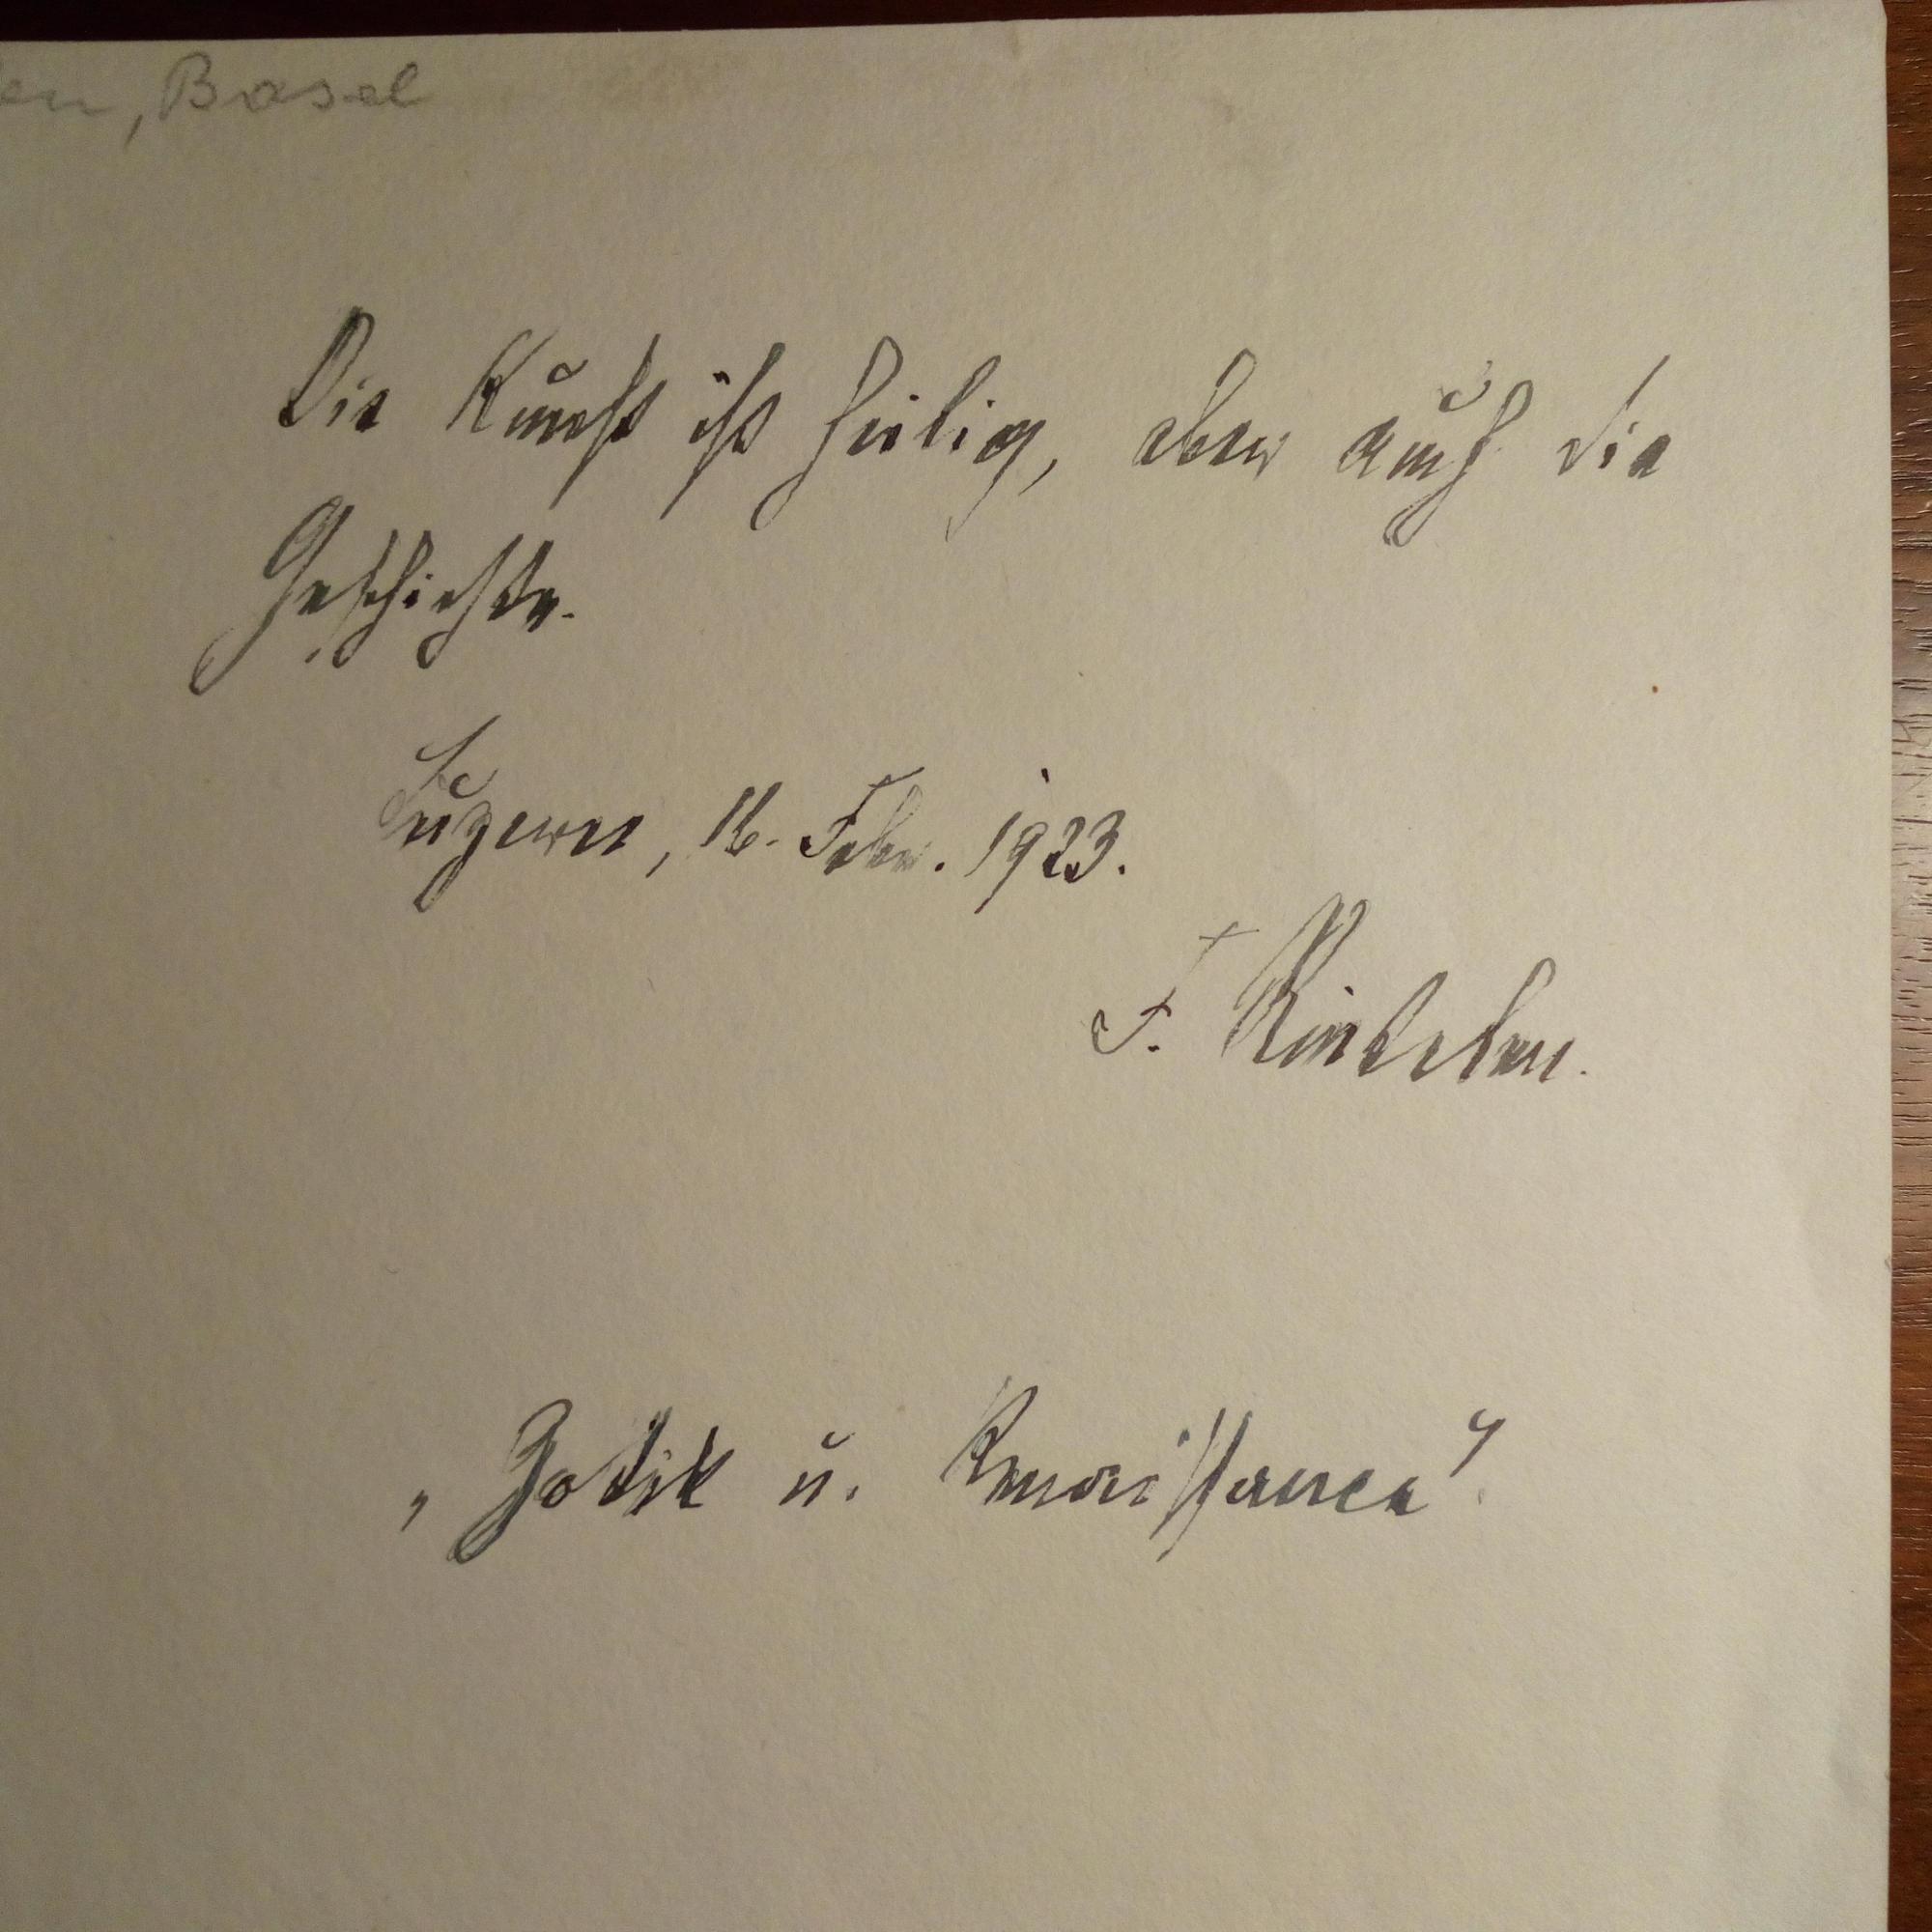 en, Basel
Die Kunst ist heilig, aber auch die
Geschichte.
Luzern, 16. Febr. 1923.
F. Rintelen.
„Gotik u. Renaissance“